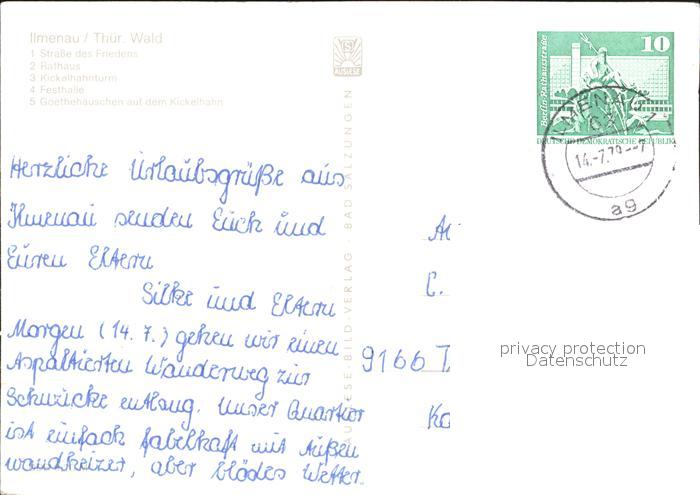 Ilmenau / Thür. Wald
1 Straße des Friedens
2 Rathaus
3 Kickelhahnturm
4 Festhalle
5 Goethehäuschen auf dem Kickelhahn
AUSLESE
AUSLESE-BILD-VERLAG · BAD SALZUNGEN
10
Berlin, Rathausstraße
DEUTSCHE DEMOKRATISCHE REPUBLIK
ILMENAU 1
63
14.-7.79--7
ag
Herzliche Urlaubsgrüße aus
Ilmenau senden Euch und
Euren Eltern
Silke und Eltern
Morgen (14. 7.) gehen wir einen
Aspaltierten Wanderweg zur
Schmücke entlang. Unser Quartier
ist einfach fabelhaft mit Außen
wandheizer, aber blödes Wetter.
C.
9166
privacy protection
Datenschutz